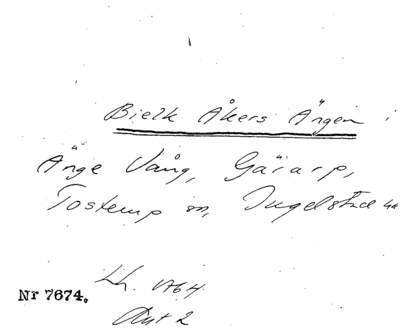 Bielk Åkers Ängen i
Änge Vång, Gärarp,
Tosterup sn, Ingelstad hd
Lh. VA64
Nr 7674.
Akt 2